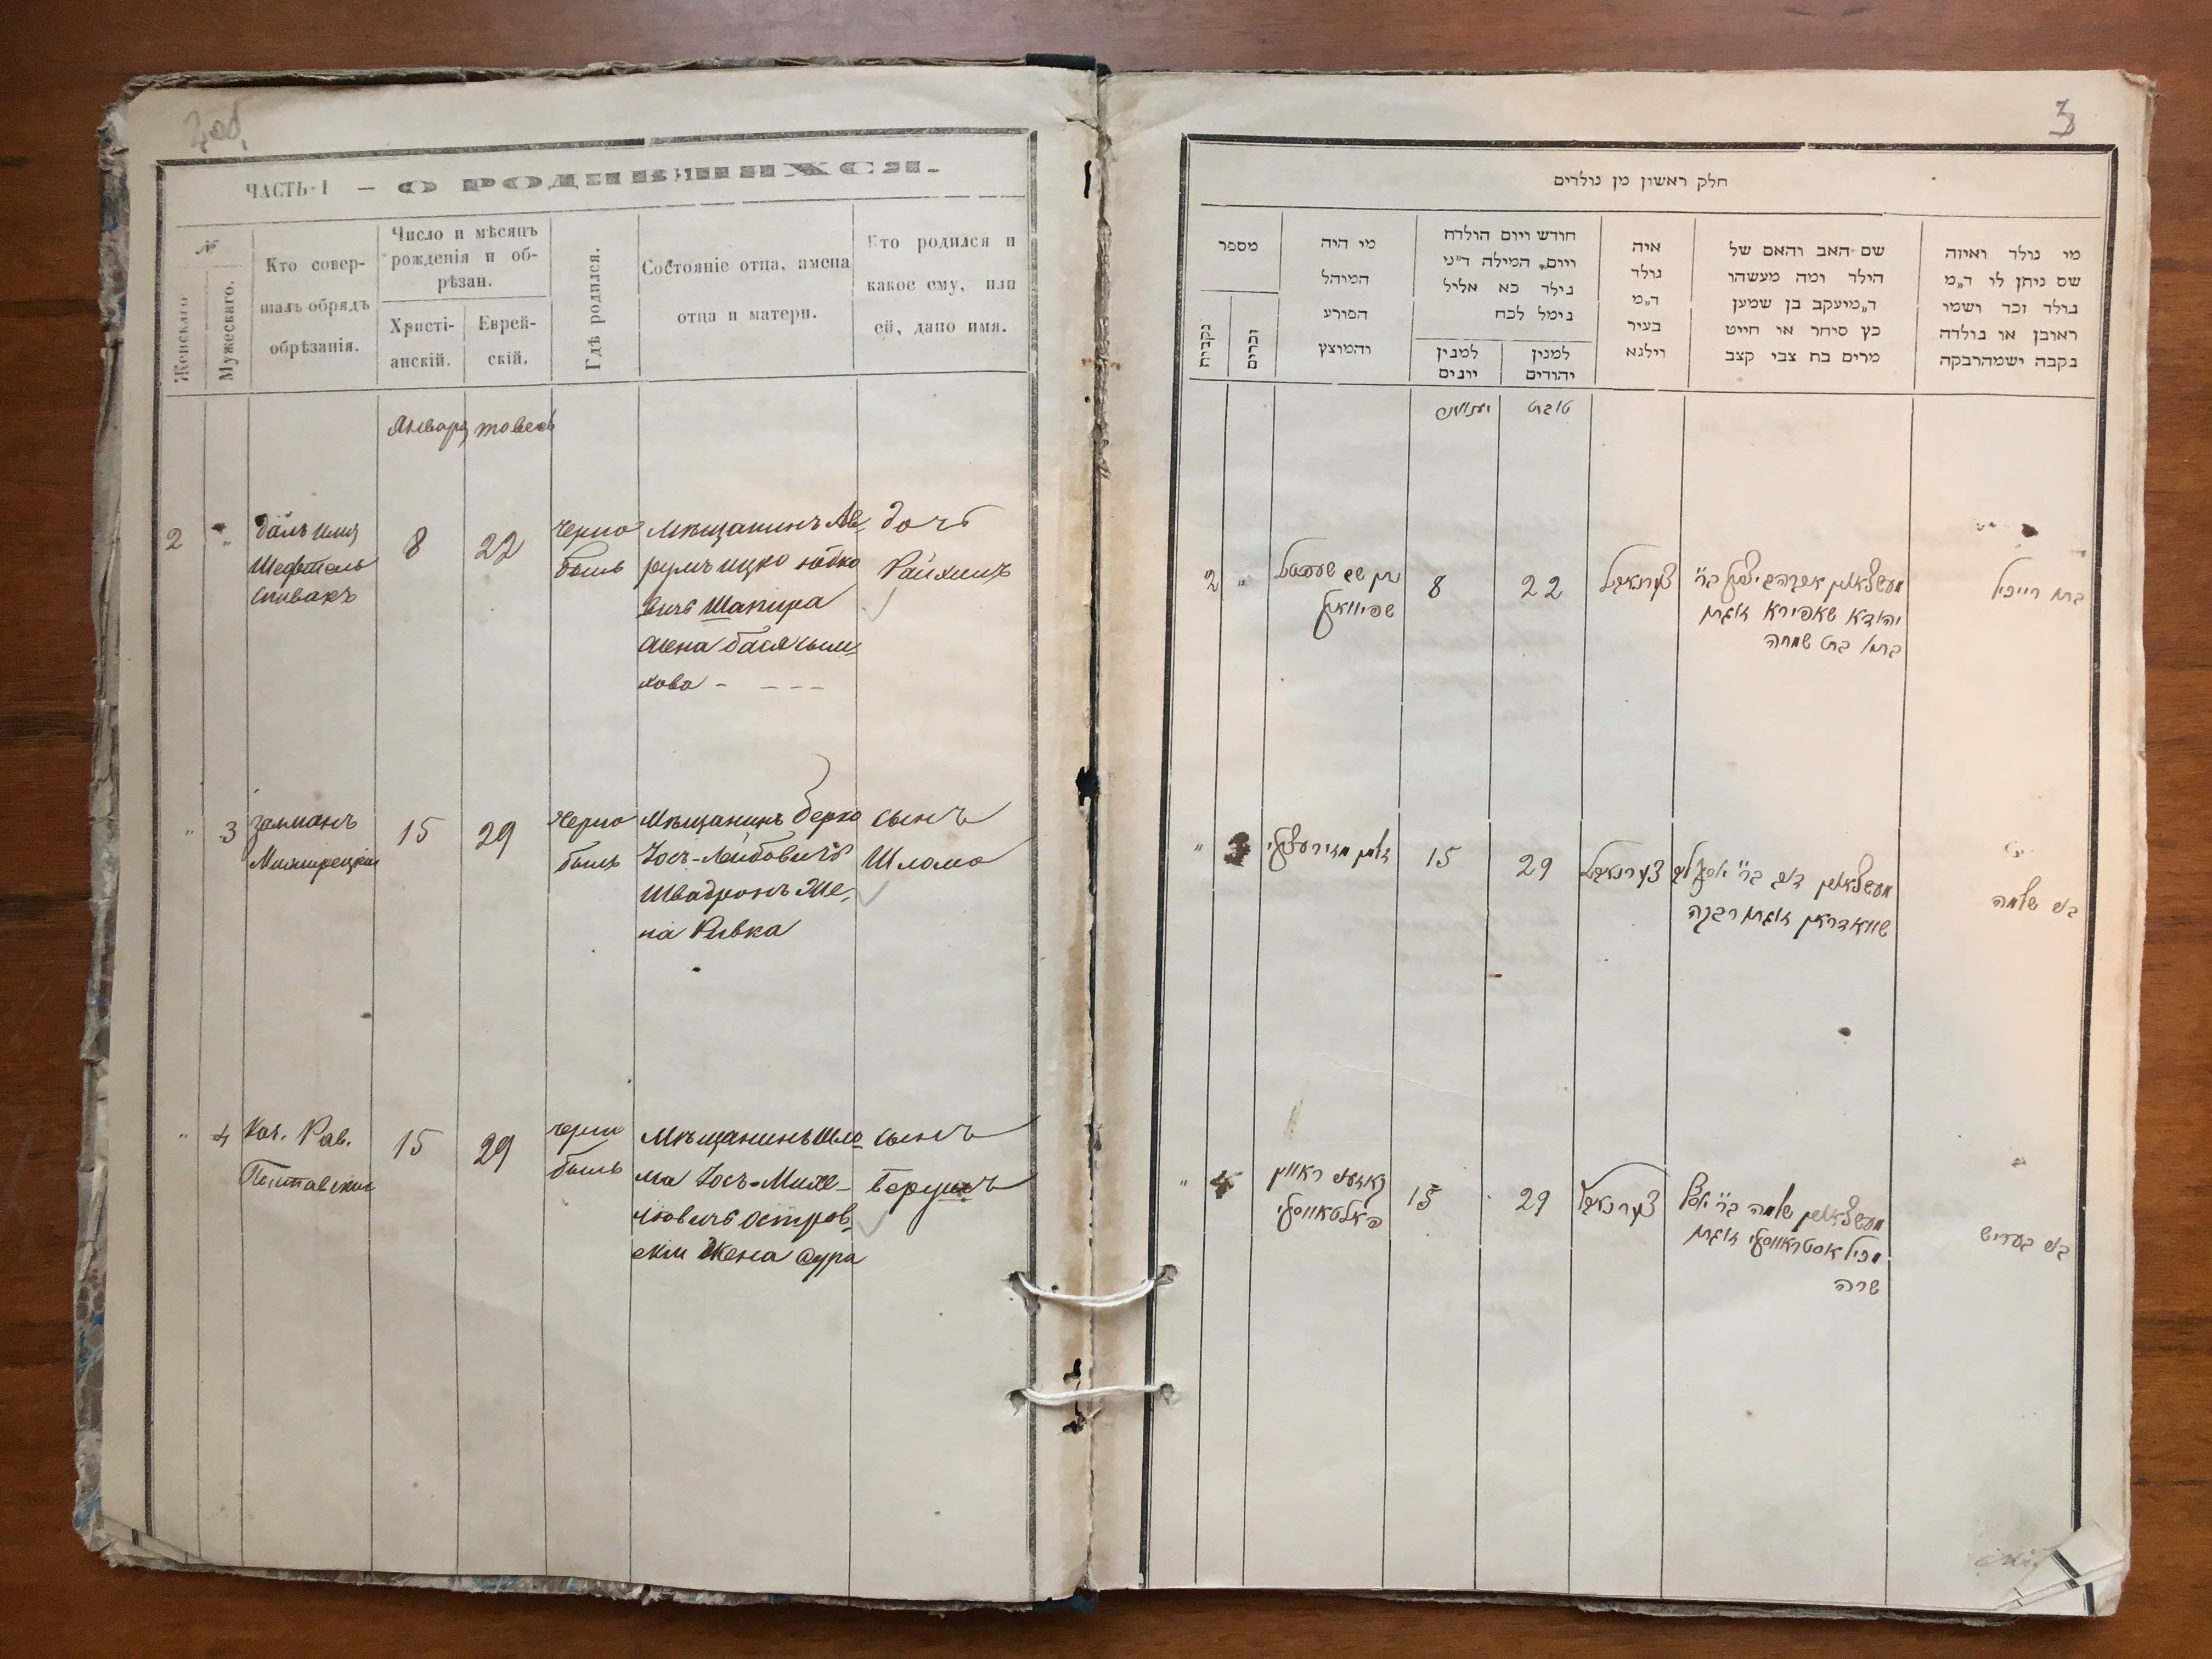 ЧАСТЬ I – О РОДИВШИХСЯ.
№
Женскаго
Мужескаго.
Кто совер-
шалъ обрядъ
обрѣзанія.
Число и мѣсяцъ
рожденія и об-
рѣзан.
Христі-
анскій.
Еврей-
скій.
Гдѣ родился.
Состояніе отца, имена
отца и матери.
Кто родился и
какое ему, или
ей, дано имя.
Январь товесъ
2 "
далъ имя
Шефтель
Спивакъ
8
22
Черно
быль
Мѣщанинъ Ав-
румъ Ицко Юдко
вичъ Шапира
жена Бася Сым-
хова - - - -
дочь
Райхиль
" 3
Залманъ
15
29
Черно
быль
Мѣщанинъ Берко
Іосъ-Лейбовичъ
Швадронъ Же-
на Ривка
сынъ
Шломо
" 4
Каз. Рав.
Полтавский
15
29
Черно
быль
Мѣщанинъ Шло-
ма Іосъ-Мих-
лювичъ Остров-
скій Жена Сура
сынъ
Берушъ
3
חלק ראשון מן נולדים
מספר
נקבות
זכרים
מי היה
המוהל
הפורע
והמוצץ
חודש ויום הולדת
ויום המילה ד״מ
נולד כא אליל
נימל לכח
למנין
יונים
למנין
יהודים
איה
נולד
ד״מ
בעיר
וילנא
שם האב והאם של
הילד ומה מעשהו
ד״מ יעקב בן שמען
כץ סוחר או חייט
מרים בת צבי קצב
מי נולד ואיזה
שם ניתן לו ד״מ
נולד זכר ושמו
ראובן או נולדה
נקבה ושמה רבקה
יאנוואר
טובט
2 "
נתן שם שעפטל
שפיוואק
8
22
צערנאביל
מעשצאנין אברהם יצחק בר״
יהודא שאפירא זוגתו
בת שמחה
בת רייכיל
" 3
זלמן
15
29
צערנאביל
מעשצאנין דוב בר״ יוסף ליב
שוואדראן זוגתו רבקה
בן שלמה
" 4
קאזענ ראווין
פאלטאווסקי
15
29
צערנאביל
מעשצאנין שלמה בר״ יוסף
מיכל אסטראווסקי זוגתו
שרה
בן בעריש